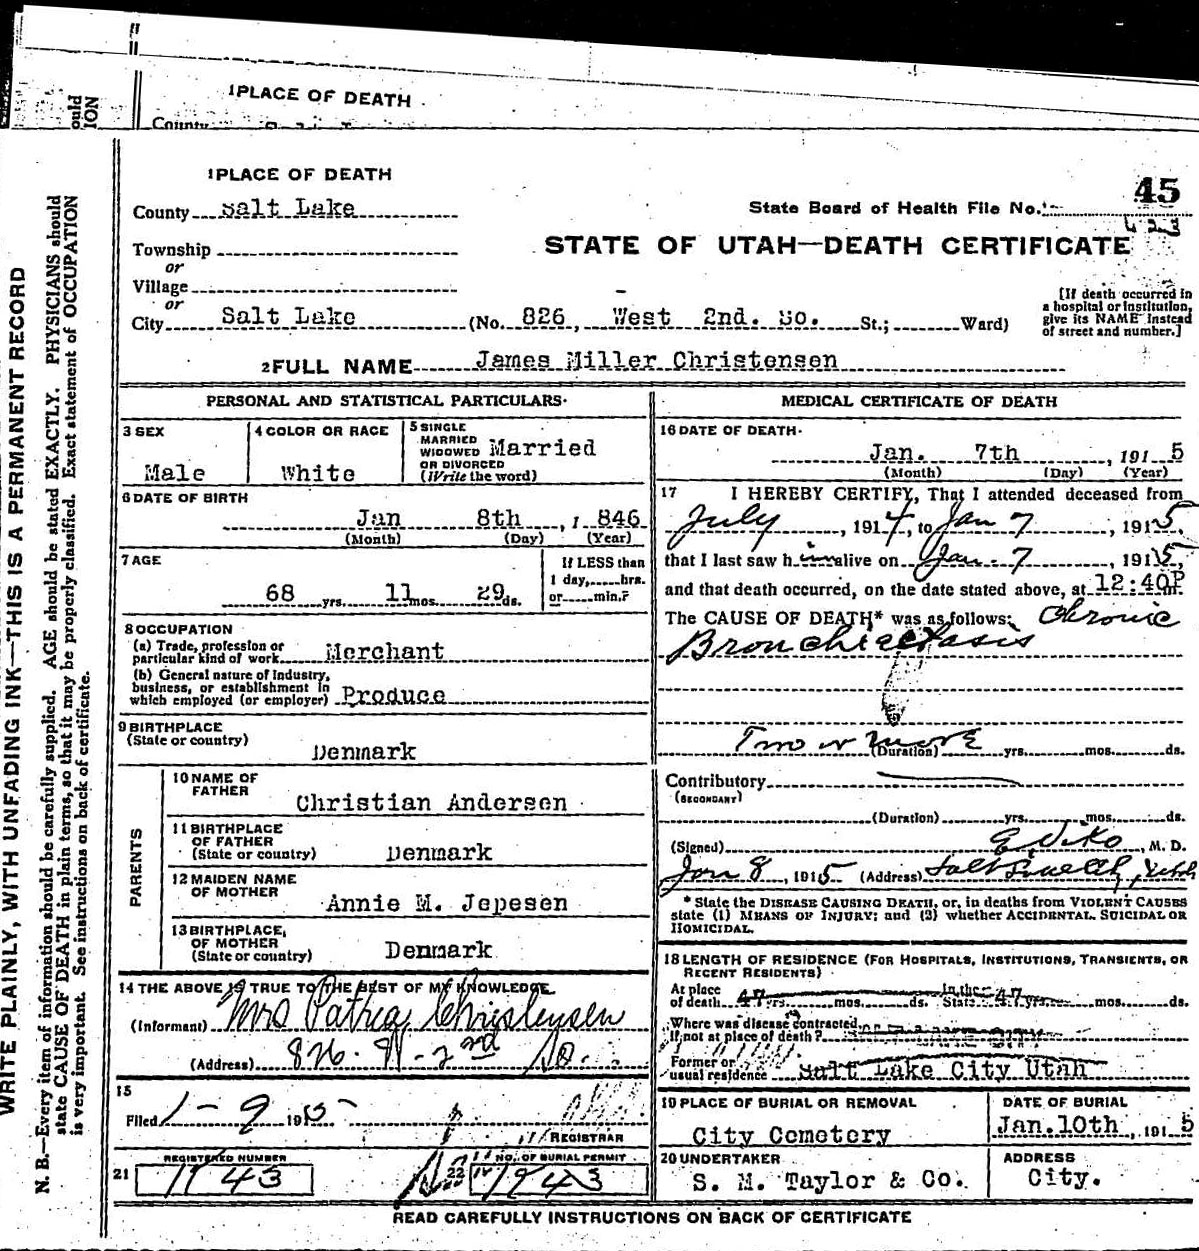 1 PLACE OF DEATH
County
ould
ION
1 PLACE OF DEATH
County Salt Lake
45
State Board of Health File No.
Township
or
STATE OF UTAH—DEATH CERTIFICATE
Village
or
City Salt Lake (No. 826, West 2nd. So. St.; Ward)
[If death occurred in
a hospital or institution,
give its NAME instead
of street and number.]
2 FULL NAME James Miller Christensen
PERSONAL AND STATISTICAL PARTICULARS
3 SEX
Male
4 COLOR OR RACE
White
5 SINGLE
MARRIED
WIDOWED
OR DIVORCED
(Write the word)
Married
6 DATE OF BIRTH
Jan 8th, 1 846
(Month) (Day) (Year)
7 AGE
68 yrs. 11 mos. 29 ds.
If LESS than
1 day, hrs.
or min.?
8 OCCUPATION
(a) Trade, profession or
particular kind of work Merchant
(b) General nature of industry,
business, or establishment in
which employed (or employer) Produce
9 BIRTHPLACE
(State or country)
Denmark
PARENTS
10 NAME OF
FATHER
Christian Andersen
11 BIRTHPLACE
OF FATHER
(State or country) Denmark
12 MAIDEN NAME
OF MOTHER
Annie M. Jepesen
13 BIRTHPLACE,
OF MOTHER
(State or country) Denmark
14 THE ABOVE IS TRUE TO THE BEST OF MY KNOWLEDGE
(Informant) Mrs Christensen
(Address) 826. W - 2nd So.
15
Filed 1-9 1915
REGISTRAR
REGISTERED NUMBER
21 1943
NO. OF BURIAL PERMIT
22 1943
MEDICAL CERTIFICATE OF DEATH
16 DATE OF DEATH
Jan. 7th, 191 5
(Month) (Day) (Year)
17 I HEREBY CERTIFY, That I attended deceased from
July, 1914, to Jan 7, 1915,
that I last saw h im alive on Jan. 7, 1915,
and that death occurred, on the date stated above, at 12:40P m.
The CAUSE OF DEATH* was as follows: Chronic
Bronchiectasis
Two or more
(Duration) yrs. mos. ds.
Contributory
(SECONDARY)
(Duration) yrs. mos. ds.
(Signed) M. D.
Jan 8, 1915 (Address) Salt Lake City, Utah
* State the DISEASE CAUSING DEATH, or, in deaths from VIOLENT CAUSES
state (1) MEANS OF INJURY; and (2) whether ACCIDENTAL, SUICIDAL OR
HOMICIDAL.
18 LENGTH OF RESIDENCE (FOR HOSPITALS, INSTITUTIONS, TRANSIENTS, OR
RECENT RESIDENTS)
At place
of death 47 yrs. mos. ds. In the State 47 yrs. mos. ds.
Where was disease contracted
If not at place of death?
Former or
usual residence Salt Lake City Utah
19 PLACE OF BURIAL OR REMOVAL
City Cemetery
DATE OF BURIAL
Jan. 10th, 191 5
20 UNDERTAKER
S. M. Taylor & Co.
ADDRESS
City.
READ CAREFULLY INSTRUCTIONS ON BACK OF CERTIFICATE
WRITE PLAINLY, WITH UNFADING INK—THIS IS A PERMANENT RECORD
N. B.—Every item of information should be carefully supplied. AGE should be stated EXACTLY. PHYSICIANS should
state CAUSE OF DEATH in plain terms, so that it may be properly classified. Exact statement of OCCUPATION
is very important. See instructions on back of certificate.